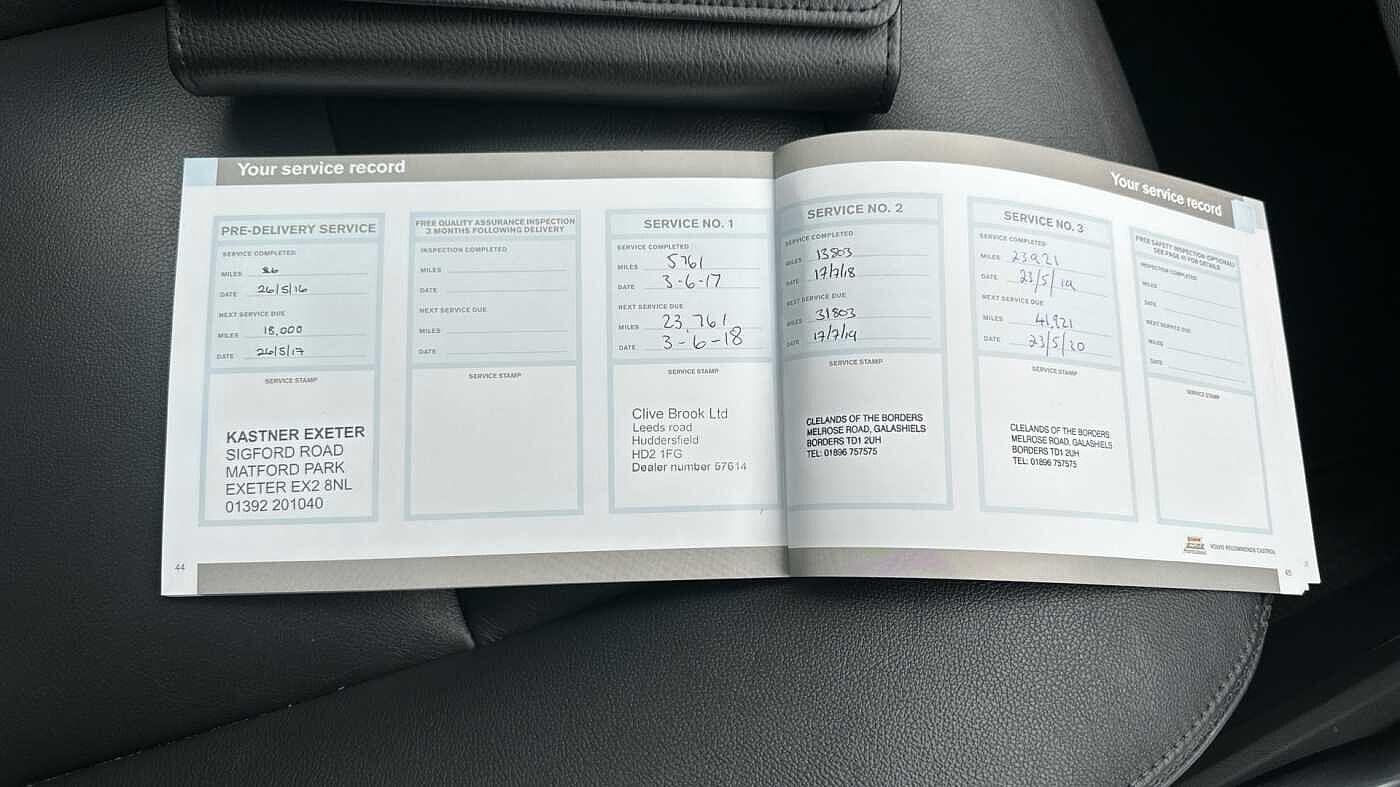 Your service record
PRE-DELIVERY SERVICE
SERVICE COMPLETED
MILES 86
DATE 26/5/16
NEXT SERVICE DUE
MILES 18,000
DATE 26/5/17
SERVICE STAMP
KASTNER EXETER
SIGFORD ROAD
MATFORD PARK
EXETER EX2 8NL
01392 201040
FREE QUALITY ASSURANCE INSPECTION
3 MONTHS FOLLOWING DELIVERY
INSPECTION COMPLETED
MILES
DATE
NEXT SERVICE DUE
MILES
DATE
SERVICE STAMP
SERVICE NO. 1
SERVICE COMPLETED
MILES 5761
DATE 3-6-17
NEXT SERVICE DUE
MILES 23,761
DATE 3-6-18
SERVICE STAMP
Clive Brook Ltd
Leeds road
Huddersfield
HD2 1FG
Dealer number 57614
44
Your service record
SERVICE NO. 2
SERVICE COMPLETED
MILES 13803
DATE 17/7/18
NEXT SERVICE DUE
MILES 31803
DATE 17/7/19
SERVICE STAMP
CLELANDS OF THE BORDERS
MELROSE ROAD, GALASHIELS
BORDERS TD1 2UH
TEL: 01896 757575
SERVICE NO. 3
SERVICE COMPLETED
MILES 23921
DATE 23/5/19
NEXT SERVICE DUE
MILES 41,921
DATE 23/5/20
SERVICE STAMP
CLELANDS OF THE BORDERS
MELROSE ROAD, GALASHIELS
BORDERS TD1 2UH
TEL: 01896 757575
FREE SAFETY INSPECTION (OPTIONAL)
SEE PAGE 111 FOR DETAILS
INSPECTION COMPLETED
MILES
DATE
NEXT SERVICE DUE
MILES
DATE
SERVICE STAMP
VOLVO RECOMMENDS CASTROL
45